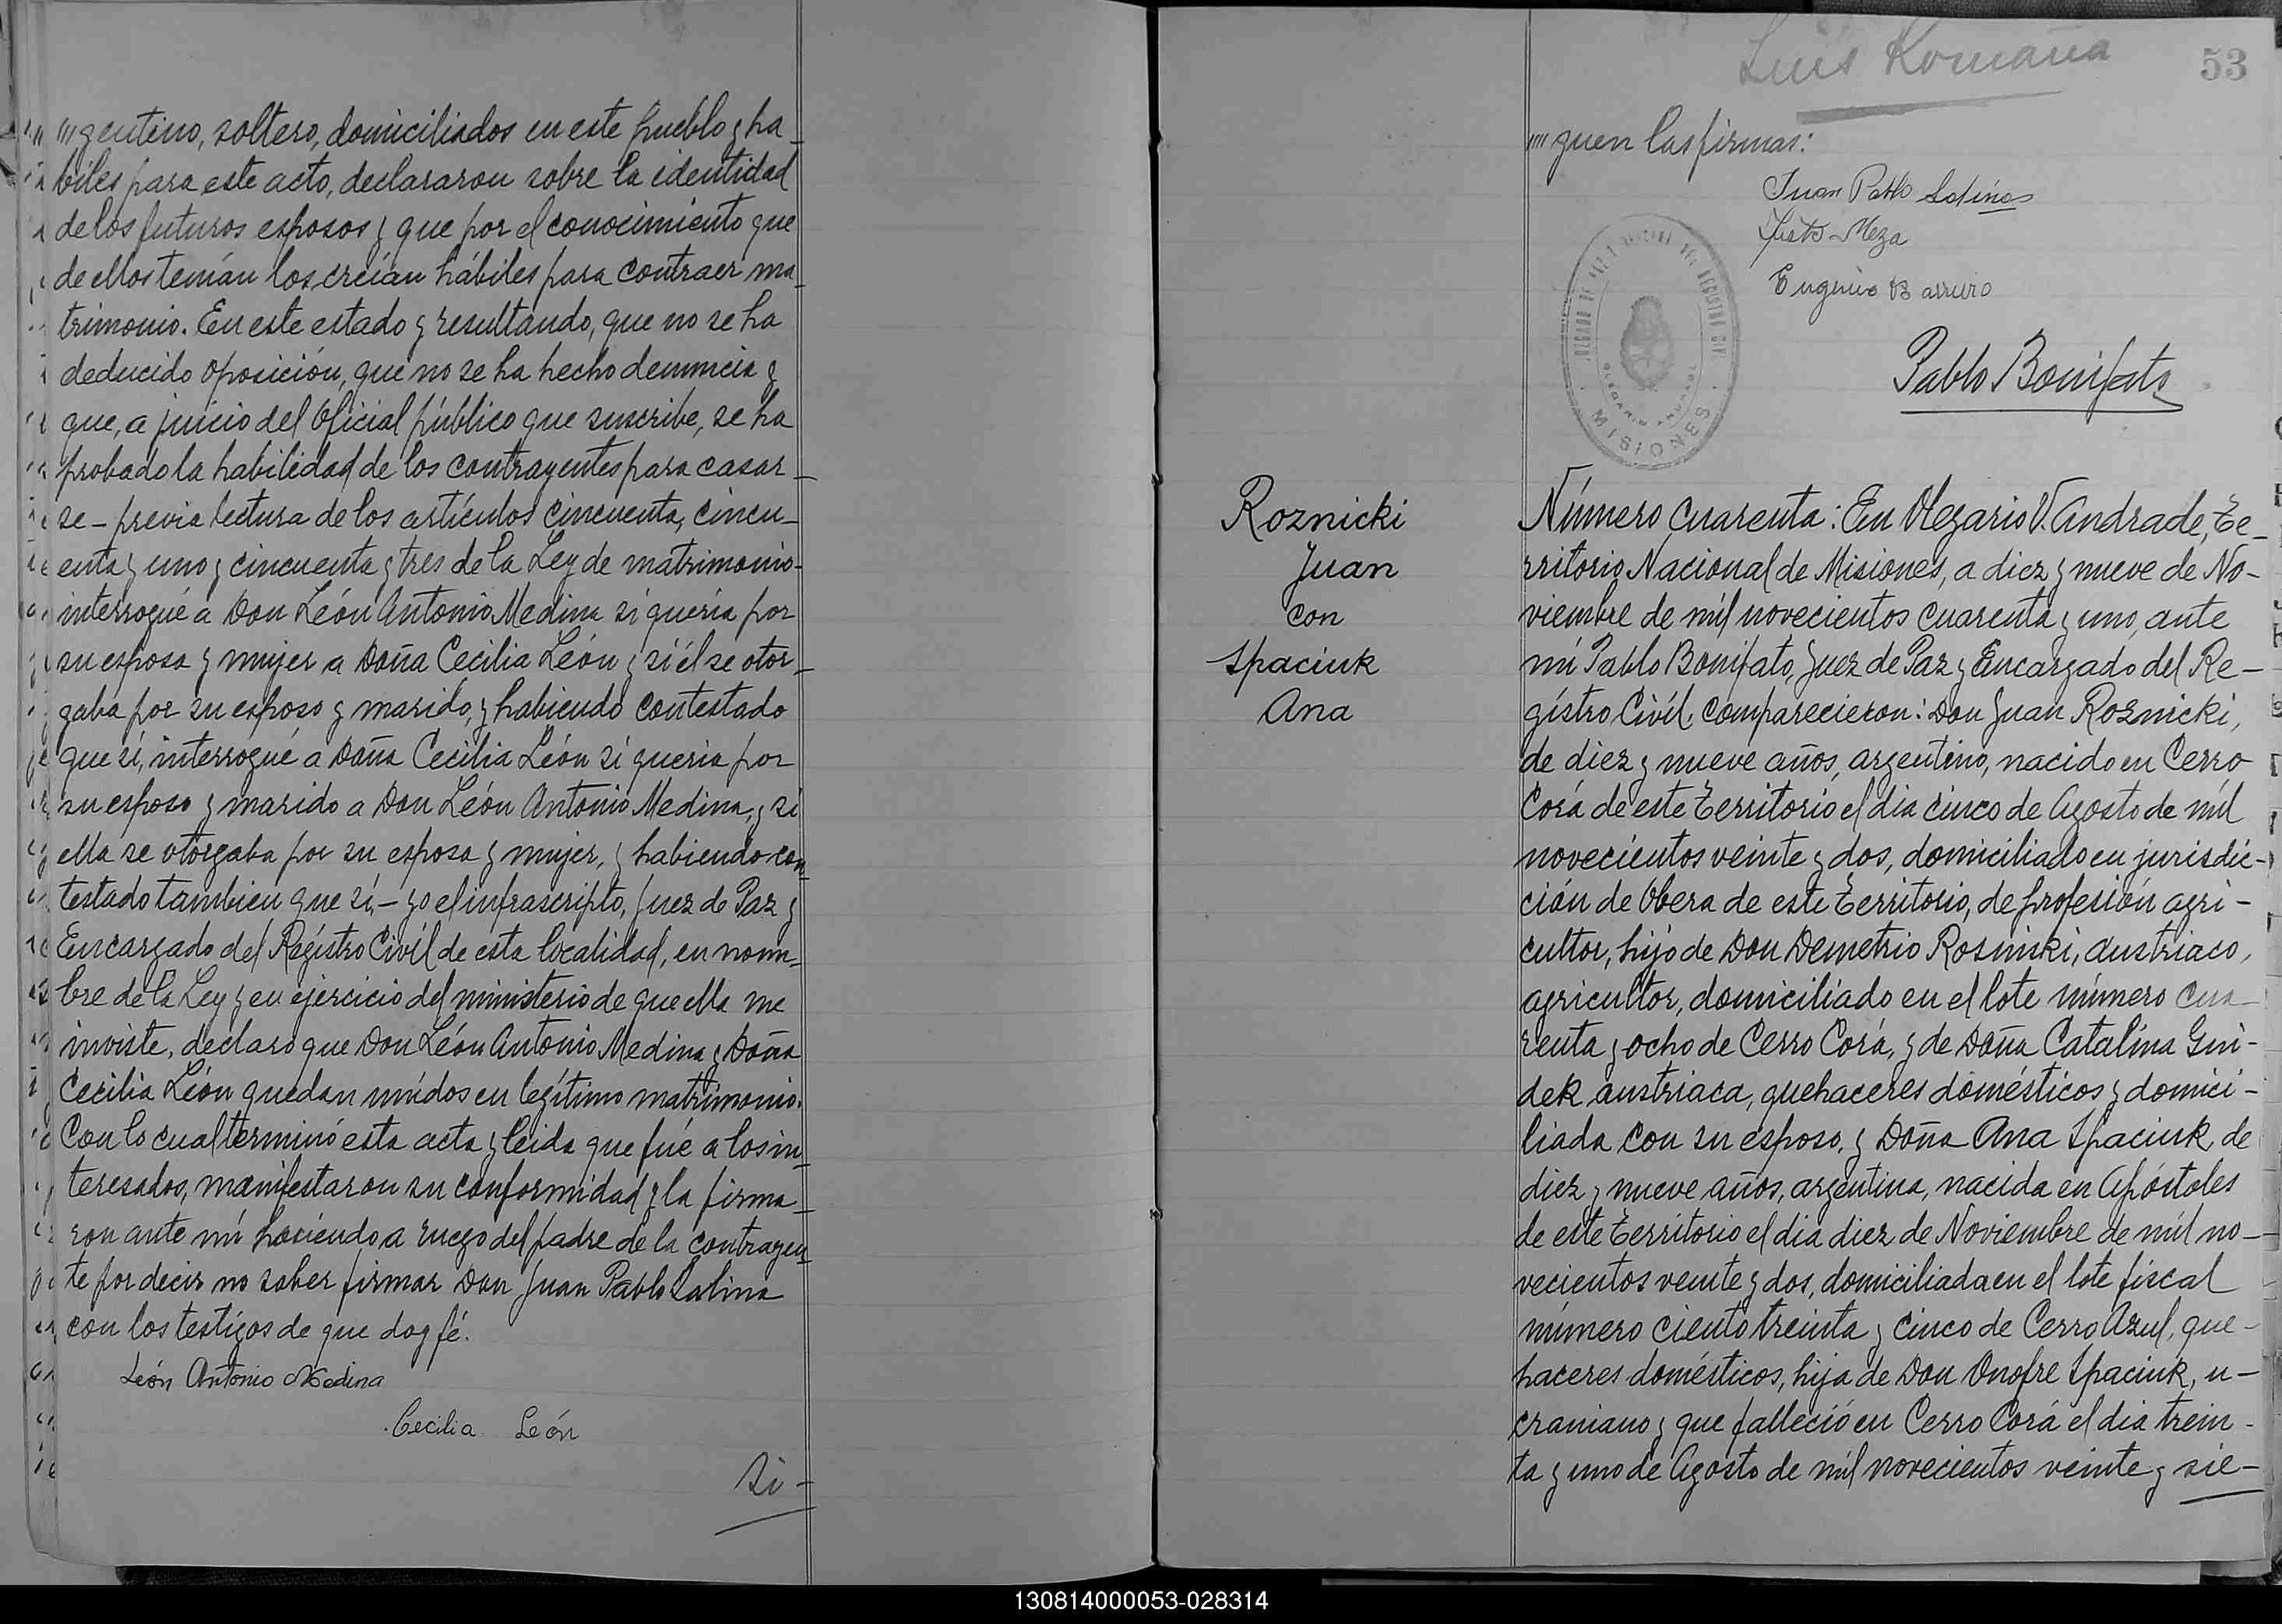 "" gentino, soltero, domiciliados en este pueblo y ha_
biles para este acto, declararon sobre la identidad
de los futuros esposos y que por el conocimiento que
de ellos tenían los creían hábiles para contraer ma_
trimonio. En este estado y resultando, que no se ha
deducido oposición, que no se ha hecho denuncia y
que, a juicio del Oficial público que suscribe, se ha
probado la habilidad de los contrayentes para casar_
se - previa lectura de los artículos cincuenta, cincu_
enta y uno y cincuenta y tres de la Ley de matrimonio-
interrogué a Don León Antonio Medina si quería por
su esposa y mujer a Doña Cecilia León y si él se otor_
gaba por su esposo y marido, y habiendo contestado
que sí, interrogué a Doña Cecilia León si queria por
su esposo y marido a Don León Antonio Medina, y si
ella se otorgaba por su esposa y mujer, y habiendo con_
testado tambien que sí, - yo el infrascripto, Juez de Paz y
Encargado del Registro Civíl de esta localidad, en nom_
bre de la Ley y en ejercicio del ministerio de que ella me
inviste, declaro que Don León Antonio Medina y Doña
Cecilia León quedan unidos en legítimo matrimonio.
Con lo cual terminó esta acta y leida que fué a los in_
teresados, manifestaron su conformidad y la firma_
ron ante mí haciendo a ruego del padre de la contrayen_
te por decir no saber firmar Don Juan Pablo Salina
con los testigos de que doy fé.
León Antonio Medina
Cecilia León
Si-
Luis Romaña
53
"" guen las firmas:
Juan Pablo Salinas
Justo Meza
Eugenio Barruro
Pablo Bonifato
MISIONES
Roznicki
Juan
con
Spaciuk
Ana
Número cuarenta: En Olegario V. Andrade, Te_
rritorio Nacional de Misiones, a diez y nueve de No-
viembre de mil novecientos cuarenta y uno, ante
mí Pablo Bonifato, Juez de Paz y Encargado del Re-
gistro Civíl, comparecieron: Don Juan Roznicki,
de diez y nueve años, argentino, nacido en Cerro
Corá de este Territorio el dia cinco de Agosto de mil
novecientos veinte y dos, domiciliado en jurisdic-
ción de Obera de este Territorio, de profesión agri-
cultor, hijo de Don Demetrio Rosinski, austriaco,
agricultor, domiciliado en el lote número cua_
renta y ocho de Cerro Corá, y de Doña Catalina Gni-
dek austriaca, quehaceres domésticos y domici-
liada con su esposo, y Doña Ana Spaciuk, de
diez y nueve años, argentina, nacida en Apóstoles
de este Territorio el dia diez de Noviembre de mil no_
vecientos veinte y dos, domiciliada en el lote fiscal
número ciento treinta y cinco de Cerro Azul, que-
haceres domésticos, hija de Don Onofre Spaciuk, u-
craniano y que falleció en Cerro Corá el dia trein-
ta y uno de Agosto de mil novecientos veinte y sie-
130814000053-028314